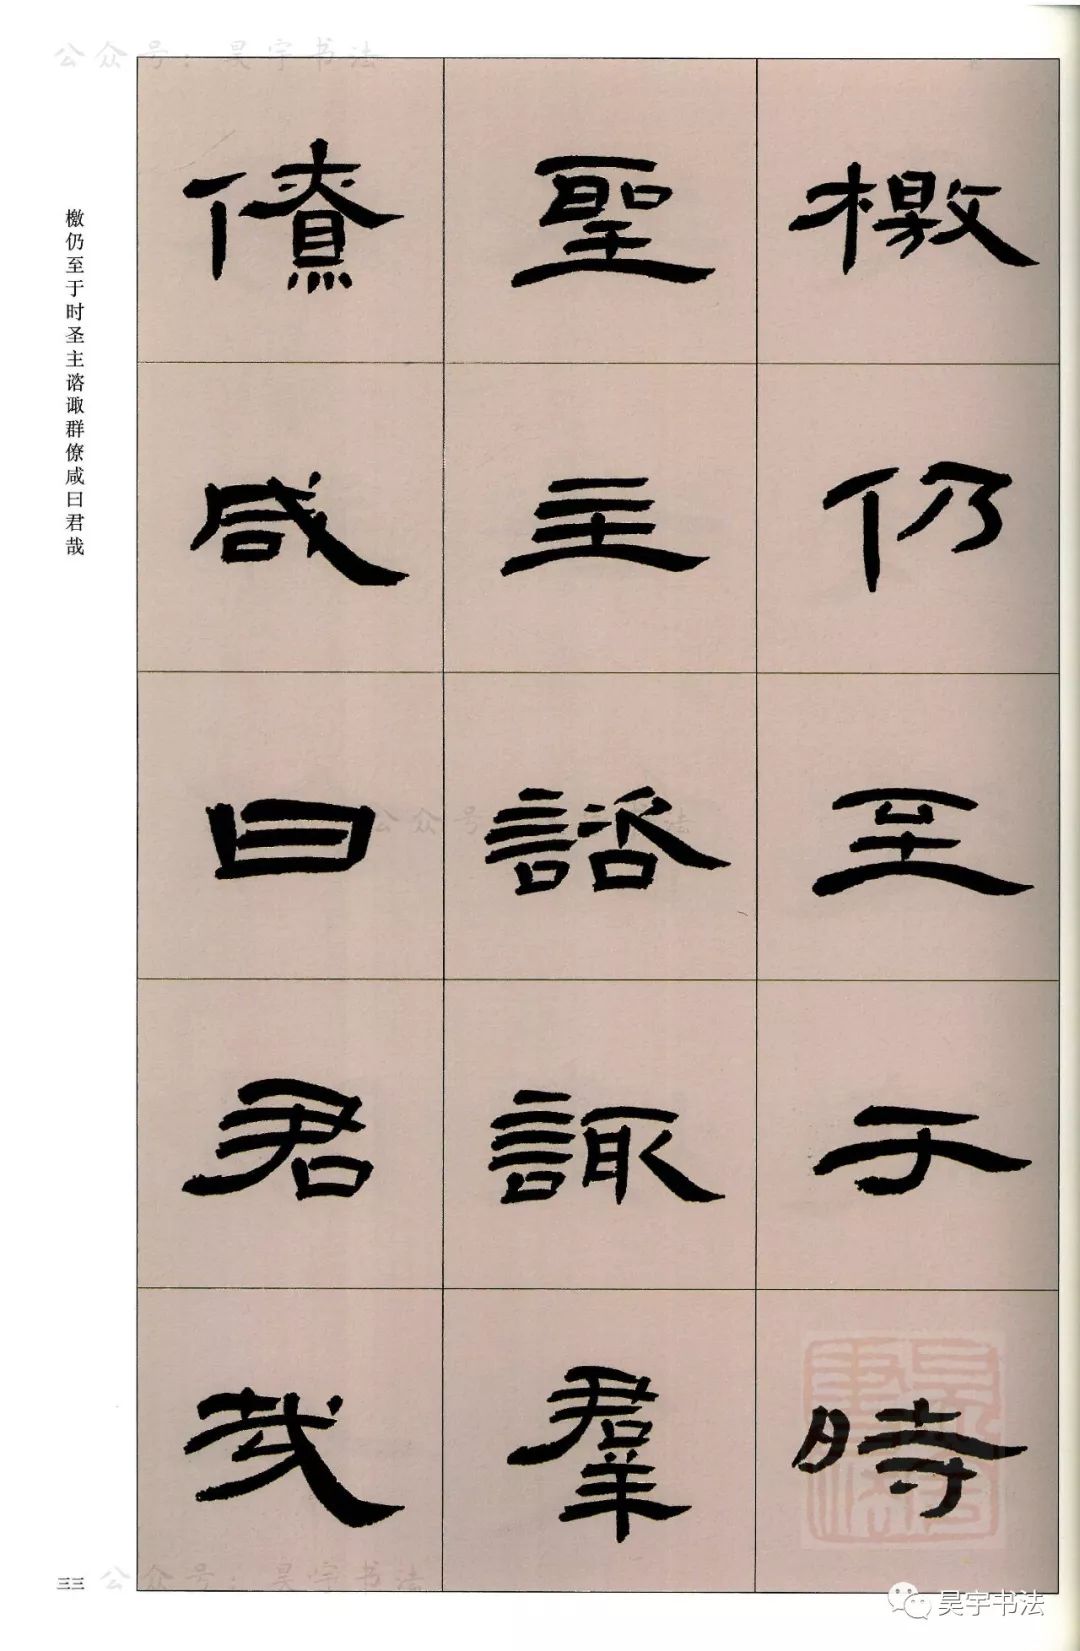 公众号：昊宇书法
檄仍至于時
聖主諮諏羣
僚咸曰君哉
檄仍至于时圣主谘诹群僚咸曰君哉
公众号：昊宇书法
三三
公众号：昊宇书法
昊宇书法